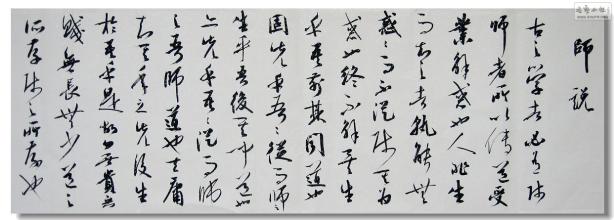 師說
古之學者必有師
師者所以傳道受
業解惑也人非生
而知之者孰能無
惑々而不從師其為
惑也終不解矣生
乎吾前其聞道也
固先乎吾々從而師之
生乎吾後其聞道也
亦先乎吾々從而師
之吾師道也夫庸
知其年之先後生
於吾乎是故無貴無
賤無長無少道之
所存師之所存也